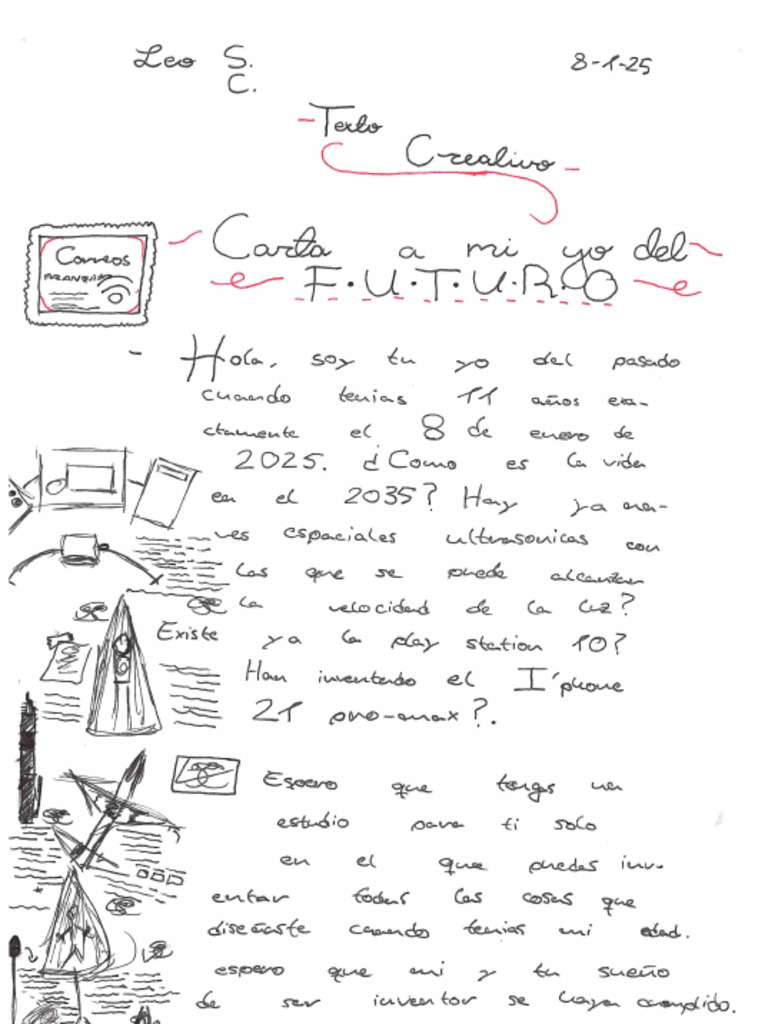 Leo S.
C.
8-1-25
- Texto
Creativo -
Correos
FRANQUEO
Carta a mi yo del
F·U·T·U·R·O
- Hola, soy tu yo del pasado
cuando tenias 11 años exa-
ctamente el 8 de enero de
2025. ¿Como es la vida
en el 2035? Hay ya na-
ves espaciales ultrasonicas con
las que se puede alcanzar
la velocidad de la luz?
Existe ya la play station 10?
Han inventado el I'phone
21 pro-max?.
Espero que tengas un
estudio para ti solo
en el que puedas inv-
entar todas las cosas que
diseñaste cuando tenias mi edad.
espero que mi y tu sueño
de ser inventor se haya cumplido.